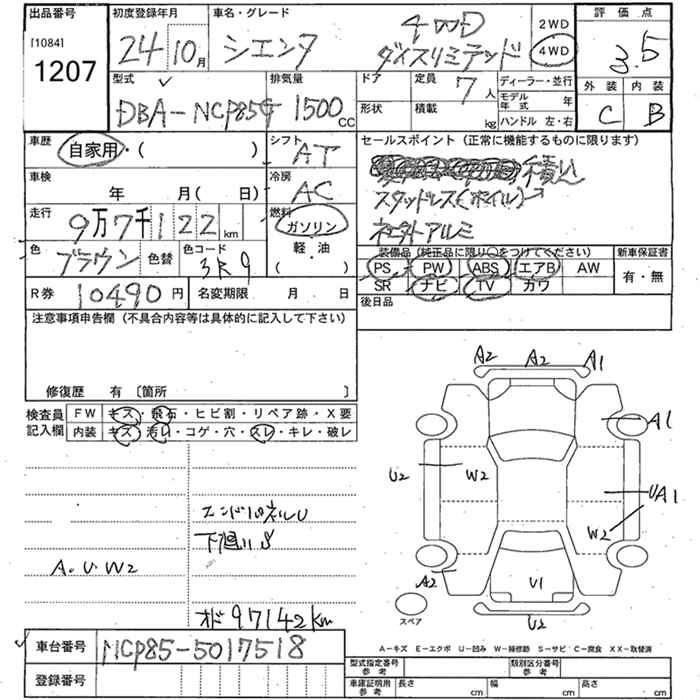 出品番号
[1084]
1207
初度登録年月
24 10月
車名・グレード
シエンタ
4WD
ダイスリミテッド
2WD
4WD
評価点
3.5
外装 内装
C B
型式
DBA-NCP85G
排気量
1500cc
ドア
形状
定員
7人
積載
kg
ディーラー・並行
モデル年式 年
ハンドル 左・右
車歴
自家用・( )
シフト
AT
車検
年 月( 日)
冷房
AC
走行
9万7千122km
燃料
ガソリン
軽・油
( )
色
ブラウン
色替
色コード
3R9
R券
10490円
名変期限 月 日
セールスポイント (正常に機能するものに限ります)
積込
スタッドレス(ホイル)→
社外アルミ
装備品(純正品に限り○をつけてください)
PS PW ABS エアB AW
SR ナビ TV カワ
新車保証書
有・無
後日品
注意事項申告欄 (不具合内容等は具体的に記入して下さい)
修復歴 有 〔箇所 〕
検査員記入欄
FW キズ・飛石・ヒビ割・リペア跡・X要
内装 キズ・汚れ・コゲ・穴・スレ・キレ・破レ
エンドパネルU
下廻りS
A.U.W2
オド97142km
A2 A2 A1
A1
U2 W2
UA1
W2
A2
U1
U2
スペア
A-キズ E-エクボ U-凹み W-補修跡 S-サビ C-腐食 XX-取替済
車台番号
NCP85-5017518
登録番号
型式指定番号
参考
類別区分番号
参考
車庫証明用
参考
長さ cm
幅 cm
高さ cm